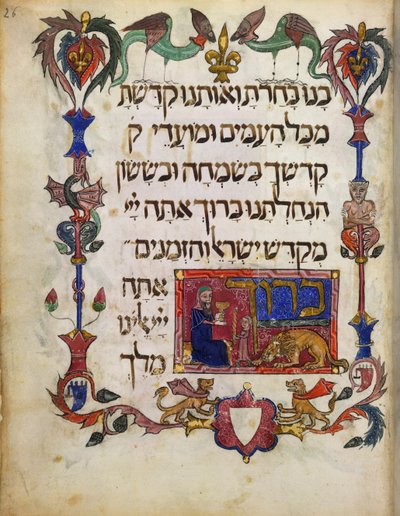 26
בנו בחרת ואותנו קדשת
מכל העמים ומועדי ק
קדשך בשמחה ובששון
הנחלתנו ברוך אתה יי
מקדש ישראל והזמנים
ברוך
אתה
יי אלהינו
מלך